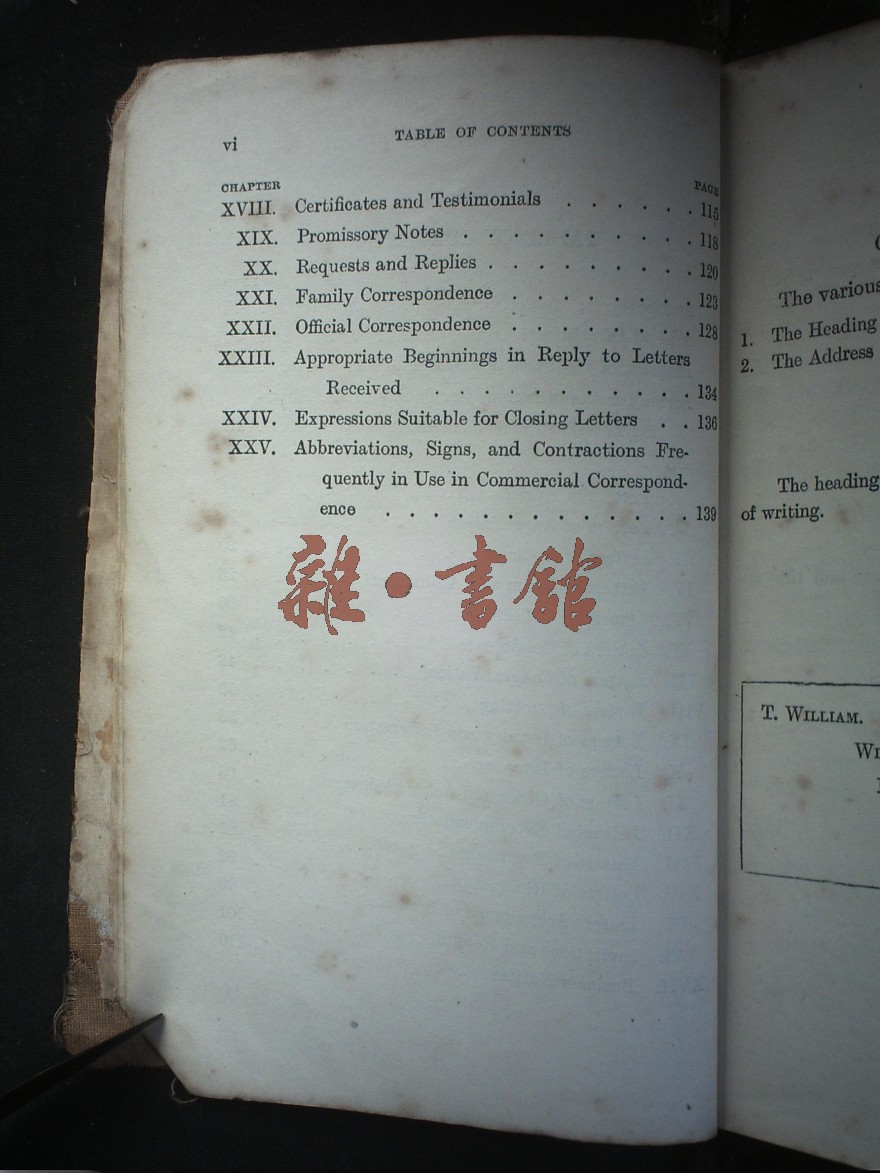 vi
TABLE OF CONTENTS
CHAPTER PAGE
XVIII. Certificates and Testimonials . . . . . . 115
XIX. Promissory Notes . . . . . . . . . . 118
XX. Requests and Replies . . . . . . . . . 120
XXI. Family Correspondence . . . . . . . . 123
XXII. Official Correspondence . . . . . . . . 128
XXIII. Appropriate Beginnings in Reply to Letters
Received . . . . . . . . . . . 134
XXIV. Expressions Suitable for Closing Letters . . 136
XXV. Abbreviations, Signs, and Contractions Fre-
quently in Use in Commercial Correspond-
ence . . . . . . . . . . . . . . 139
雜·書館
The various
1. The Heading
2. The Address
The heading
of writing.
T. WILLIAM.